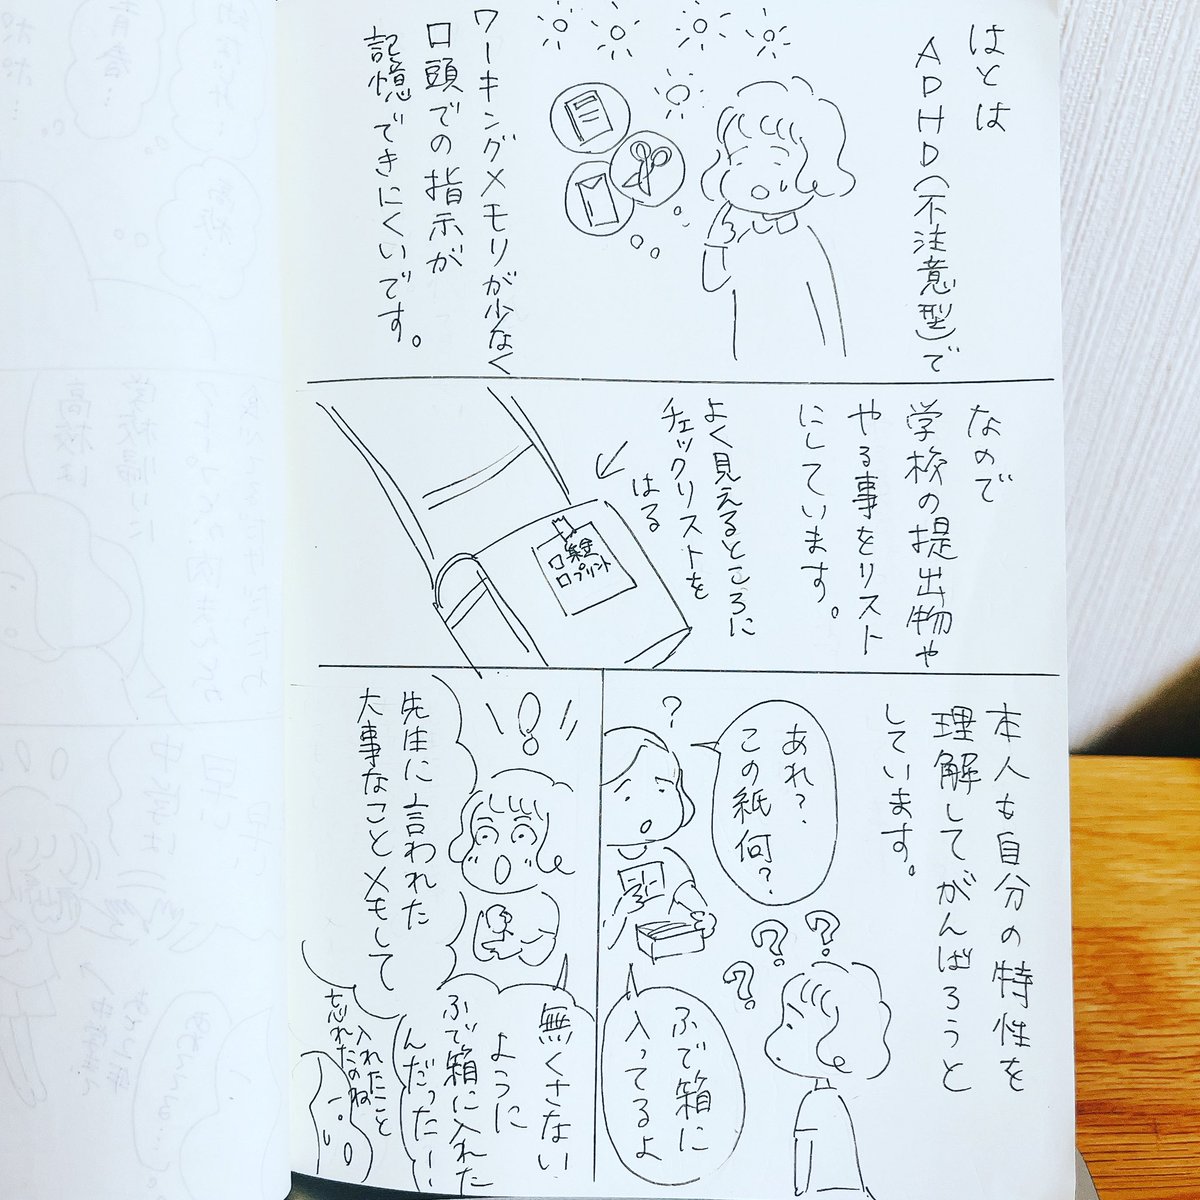 はとは
ADHD(不注意型)で
ワーキングメモリが少なく
口頭での指示が
記憶できにくいです。
なので
学校の提出物や
やる事をリスト
にしています。
よく見えるところに
チェックリストを
はる
□集金
□プリント
本人も自分の特性を
理解してがんばろうと
しています。
あれ?
この紙何?
?
???
ふで箱に
入ってるよ
!
先生に言われた
大事なことメモして
無くさない
ように
ふで箱に入れた
んだったー!
入れたこと
忘れたのね